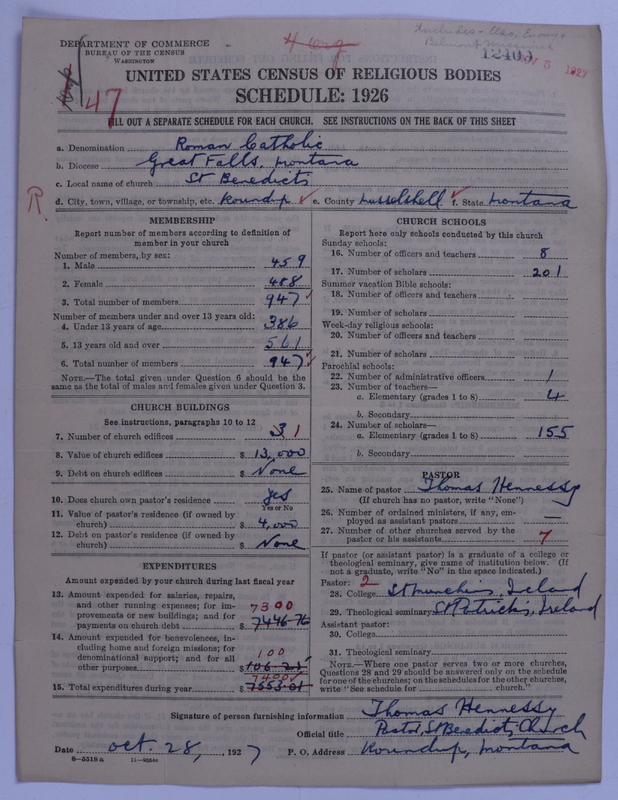 4 Org
Includes - Elso, Emory &
Belmont Missions
12400
NOV 5 1927
DEPARTMENT OF COMMERCE
BUREAU OF THE CENSUS
WASHINGTON
47
UNITED STATES CENSUS OF RELIGIOUS BODIES
SCHEDULE: 1926
FILL OUT A SEPARATE SCHEDULE FOR EACH CHURCH. SEE INSTRUCTIONS ON THE BACK OF THIS SHEET
a. Denomination Roman Catholic
b. Diocese Great Falls, Montana
c. Local name of church St Benedicts
R.
d. City, town, village, or township, etc. Roundup ✓ e. County Musselshell ✓ f. State Montana
MEMBERSHIP
Report number of members according to definition of
member in your church
Number of members, by sex:
1. Male 459
2. Female 488
3. Total number of members 947 ✓
Number of members under and over 13 years old:
4. Under 13 years of age 386
5. 13 years old and over 561
6. Total number of members 947 ✓
NOTE.—The total given under Question 6 should be the
same as the total of males and females given under Question 3.
CHURCH BUILDINGS
See instructions, paragraphs 10 to 12
7. Number of church edifices 3 1
8. Value of church edifices $ 13,000
9. Debt on church edifices $ None
10. Does church own pastor's residence yes
Yes or No
11. Value of pastor's residence (if owned by
church) $ 4,000
12. Debt on pastor's residence (if owned by
church) $ None
EXPENDITURES
Amount expended by your church during last fiscal year
13. Amount expended for salaries, repairs,
and other running expenses; for im-
provements or new buildings; and for
payments on church debt $ 7446-76
7300
14. Amount expended for benevolences, in-
cluding home and foreign missions; for
denominational support; and for all
other purposes $ 106-25
100
7400
15. Total expenditures during year $ 7553-01
CHURCH SCHOOLS
Report here only schools conducted by this church
Sunday schools:
16. Number of officers and teachers 8
17. Number of scholars 201
Summer vacation Bible schools:
18. Number of officers and teachers
19. Number of scholars
Week-day religious schools:
20. Number of officers and teachers
21. Number of scholars
Parochial schools:
22. Number of administrative officers 1
23. Number of teachers—
a. Elementary (grades 1 to 8) 4
b. Secondary
24. Number of scholars—
a. Elementary (grades 1 to 8) 155
b. Secondary
PASTOR
25. Name of pastor Thomas Hennessy
(If church has no pastor, write "None")
26. Number of ordained ministers, if any, em-
ployed as assistant pastors —
27. Number of other churches served by the
pastor or his assistants 7
If pastor (or assistant pastor) is a graduate of a college or
theological seminary, give name of institution below. (If
not a graduate, write "No" in the space indicated.)
Pastor: 2
28. College St Munchins, Ireland
29. Theological seminary St Patricks, Ireland
Assistant pastor:
30. College
31. Theological seminary
NOTE.—Where one pastor serves two or more churches,
Questions 28 and 29 should be answered only on the schedule
for one of the churches; on the schedules for the other churches,
write "See schedule for church."
Signature of person furnishing information Thomas Hennessy
Official title Pastor, St Benedicts Church
Date Oct. 28, 1927 P. O. Address Roundup, Montana
8—5518a 11—9554a